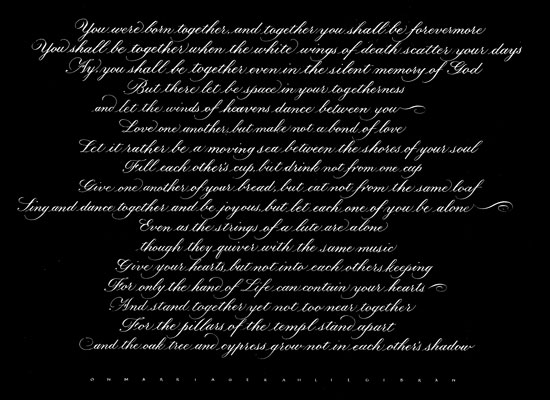 You were born together, and together you shall be forevermore
You shall be together when the white wings of death scatter your days
Ay, you shall be together even in the silent memory of God
But there let be space in your togetherness
and let the winds of heavens dance between you
Love one another, but make not a bond of love
Let it rather be a moving sea between the shores of your soul
Fill each other's cup, but drink not from one cup
Give one another of your bread, but eat not from the same loaf
Sing and dance together and be joyous, but let each one of you be alone
Even as the strings of a lute are alone
though they quiver with the same music
Give your hearts, but not into each others keeping
For only the hand of Life can contain your hearts
And stand together yet not too near together
For the pillars of the templ stand apart
and the oak tree and cypress grow not in each other's shadow
ON MARRIAGE KAHLIL GIBRAN